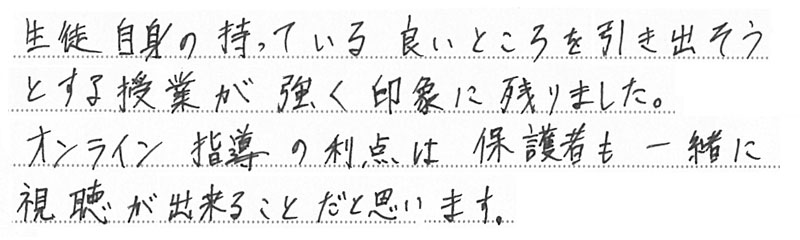 生徒自身の持っている良いところを引き出そう
とする授業が強く印象に残りました。
オンライン指導の利点は保護者も一緒に
視聴が出来ることだと思います。